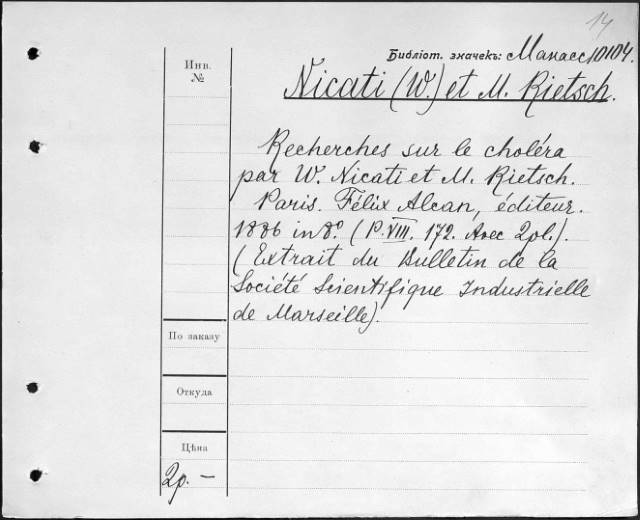 14
Библіот. значекъ: Манасс10104.
Инв.
№
Nicati (W.) et M. Rietsch.
Recherches sur le choléra
par W. Nicati et M. Rietsch.
Paris. Félix Alcan, éditeur.
1886 in 8º. (P. VIII. 172. Avec 2pl.).
(Extrait du Bulletin de la
Société Scientifique Industrielle
de Marseille).
По заказу
Откуда
Цѣна
2р. —